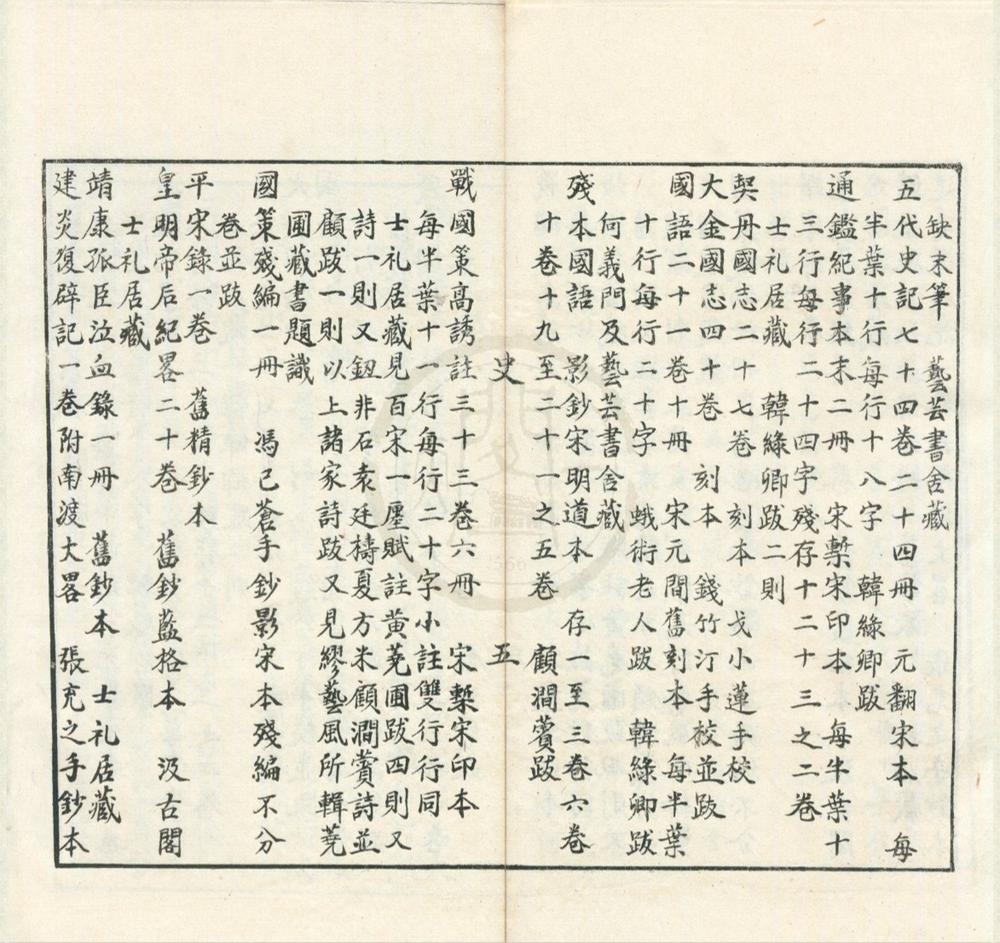 缺末筆　藝芸書舍藏
五代史記七十四卷二十四冊　元翻宋本　每
半葉十行每行十八字　韓綠卿跋
通鑑紀事本末二冊　宋槧宋印本　每半葉十
三行每行二十四字殘存十二十三之二卷
士礼居藏　韓綠卿跋二則
契丹國志二十七卷　刻本　戈小蓮手校
大金國志四十卷　刻本　錢竹汀手校並跋
國語二十一卷十冊　宋元間舊刻本　每半葉
十行每行二十字　蛾術老人跋　韓綠卿跋
何義門及藝芸書舍藏
殘本國語　影鈔宋明道本　存一至三卷六卷
十卷十九至二十一之五卷　顧澗薲跋
史　五
戰國策高誘註三十三卷六冊　宋槧宋印本
每半葉十一行每行二十字小註雙行行同
士礼居藏見百宋一廛賦註黃蕘圃跋四則又
詩一則又鈕非石袁廷檮夏方米顧澗薲詩並
顧跋一則以上諸家詩跋又見繆藝風所輯蕘
圃藏書題識
國策殘編一冊　馮已蒼手鈔影宋本殘編不分
卷並跋
平宋錄一卷　舊精鈔本
皇明帝后紀畧二十卷　舊鈔藍格本　汲古閣
士礼居藏
靖康孤臣泣血錄一冊　舊鈔本　士礼居藏
建炎復辟記一卷附南渡大畧　張充之手鈔本